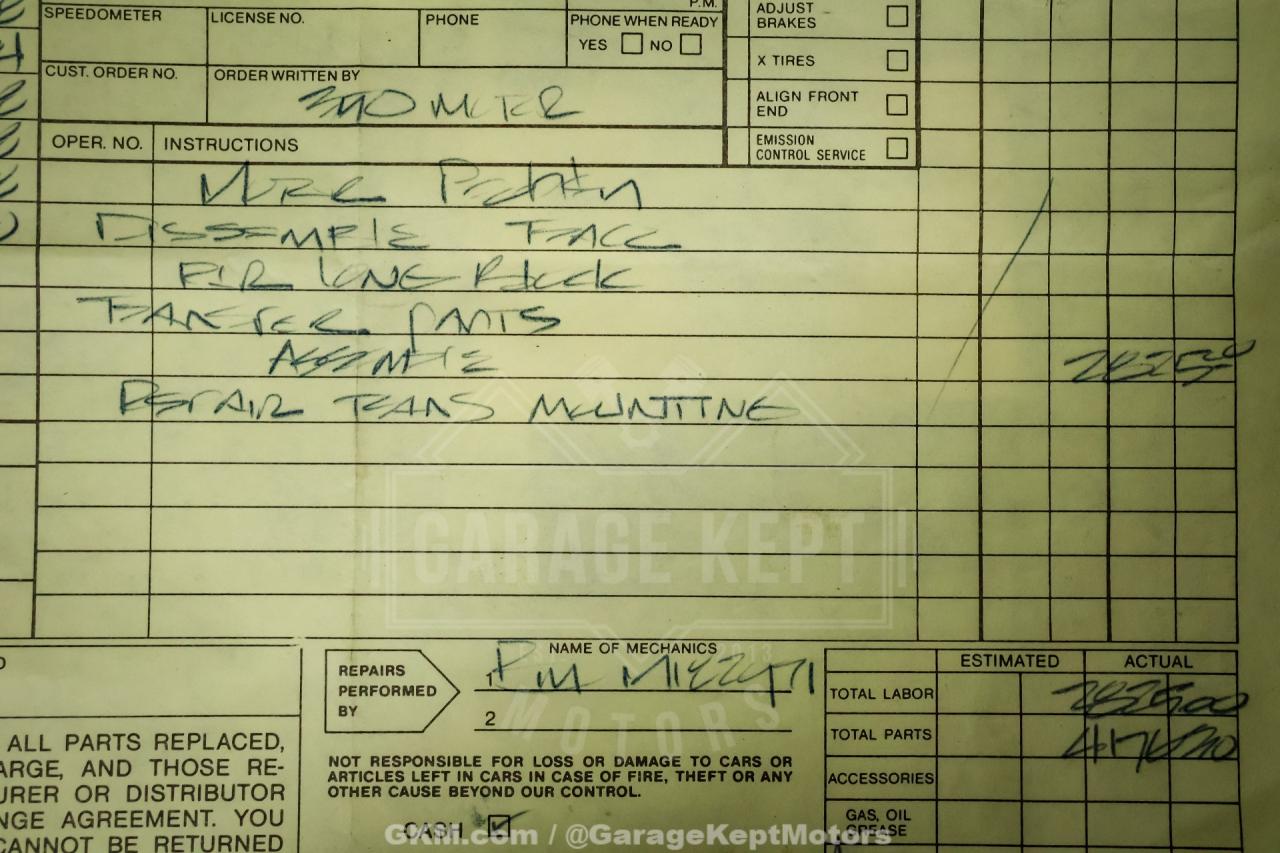 P.M.
SPEEDOMETER LICENSE NO. PHONE PHONE WHEN READY
YES NO
CUST. ORDER NO. ORDER WRITTEN BY
ADJUST
BRAKES
X TIRES
ALIGN FRONT
END
EMISSION
CONTROL SERVICE
OPER. NO. INSTRUCTIONS
DISSEMPLE
FIR LONE BLOCK
TRANSFER PARTS
ASSEMPLE
REPAIR TRANS MOUNTTING
GARAGE KEPT
MOTORS
REPAIRS
PERFORMED
BY
NAME OF MECHANICS
1
2
NOT RESPONSIBLE FOR LOSS OR DAMAGE TO CARS OR
ARTICLES LEFT IN CARS IN CASE OF FIRE, THEFT OR ANY
OTHER CAUSE BEYOND OUR CONTROL.
CASH
ESTIMATED ACTUAL
TOTAL LABOR
TOTAL PARTS
ACCESSORIES
GAS, OIL
GREASE
ALL PARTS REPLACED,
ARGE, AND THOSE RE-
URER OR DISTRIBUTOR
NGE AGREEMENT. YOU
CANNOT BE RETURNED
GKM.com / @GarageKeptMotors